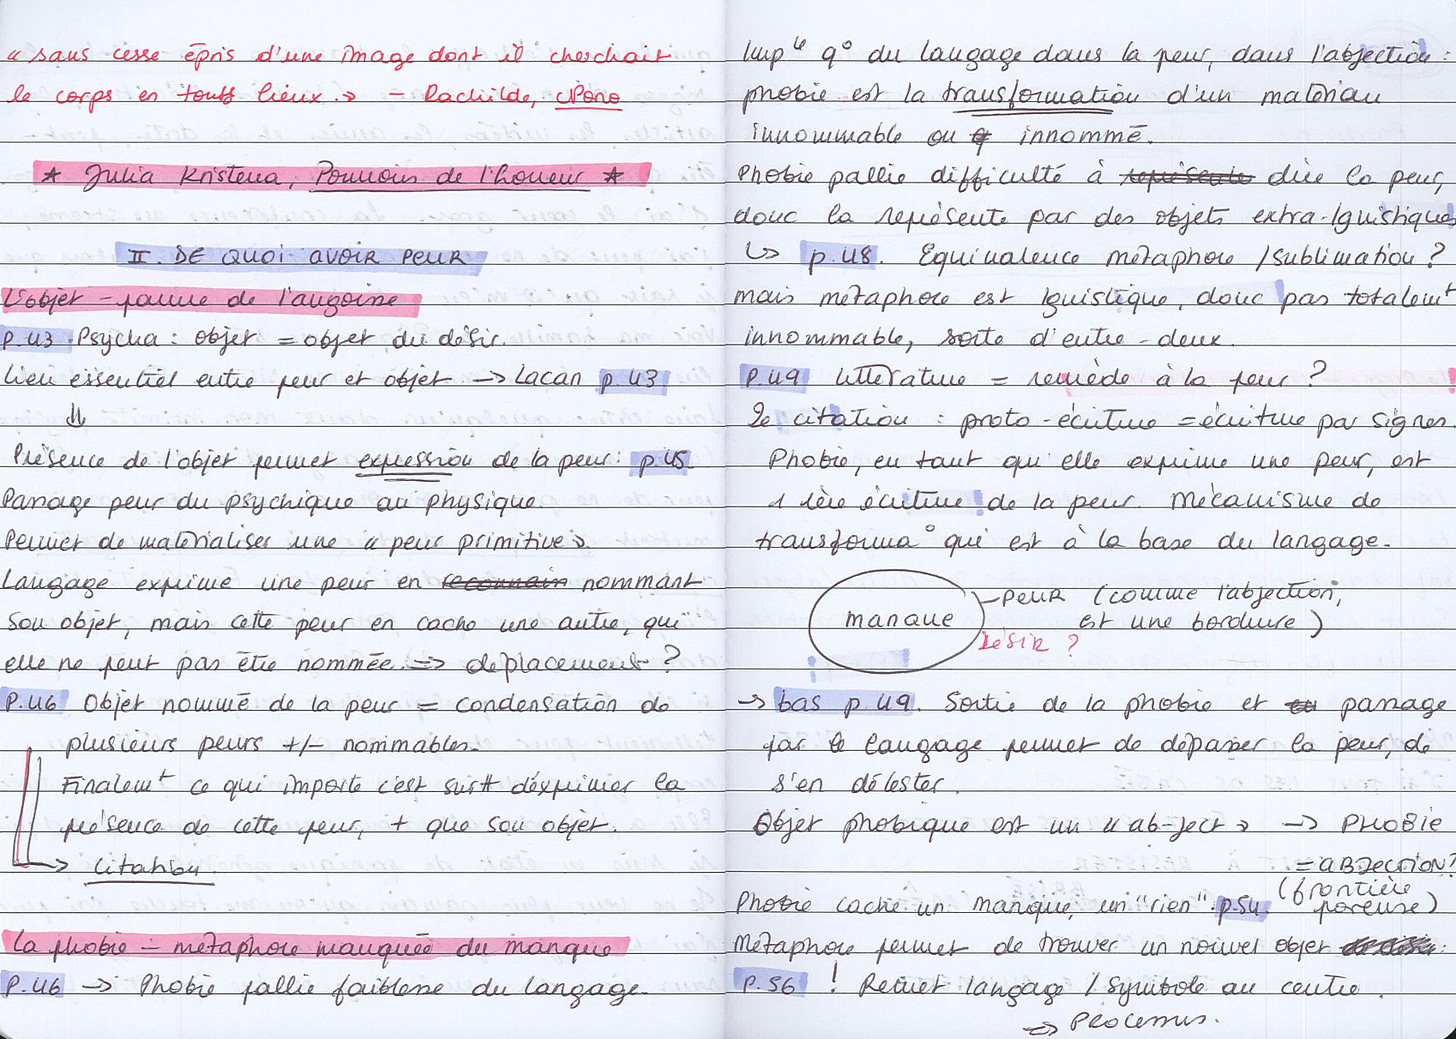 « sans cesse épris d'une image dont il cherchait
le corps en tous lieux. » – Rachilde,
* Julia Kristeva, Pouvoirs de l'horreur *
II. DE QUOI AVOIR PEUR
L'objet – parure de l'angoisse
p.43 Psycha : objet = objet du désir.
Lien essentiel entre peur et objet → Lacan p.43
⇓
Présence de l'objet permet expression de la peur : p.45
Passage peur du psychique au physique.
Permet de matérialiser une « peur primitive ».
Langage exprime une peur en reconnaiss nommant
son objet, mais cette peur en cache une autre, qui
elle ne peut pas être nommée. ⇒ déplacement ?
P.46 Objet nommé de la peur = condensation de
plusieurs peurs +/- nommables.
Finalemt ce qui importe c'est surtt d'exprimer la
présence de cette peur, + que son objet.
→ citation.
La phobie – métaphore manquée du manque
P.46 → Phobie pallie faiblesse du langage.
Imp q° du langage dans la peur, dans l'abjection :
phobie est la transformation d'un matériau
innommable ou innommé.
Phobie pallie difficulté à représente dire la peur,
donc la représente par des objets extra-lguistiques
↳ p.48. Equivalence métaphore / sublimation ?
mais métaphore est lguistique, donc pas totalemt
innommable, sorte d'entre-deux.
p.49 Littérature = remède à la peur ?
2e citation : proto-écriture = écriture par signes.
Phobie, en tant qu'elle exprime une peur, est
1 1ère écriture de la peur. Mécanisme de
transforma° qui est à la base du langage.
manque – PEUR (comme l'abjection,
est une bordure)
DÉSIR ?
→ bas p.49. Sortie de la phobie et passage
par le langage permet de dépasser la peur, de
s'en délester.
Objet phobique est un « ab-ject » → PHOBIE
= ABJECTION?
(frontière
poreuse)
Phobie cache un manque, un "rien". p.54.
Métaphore permet de trouver un nouvel objet :
p.56 ! Remet langage / symbole au centre.
⇒ PROCESSUS.